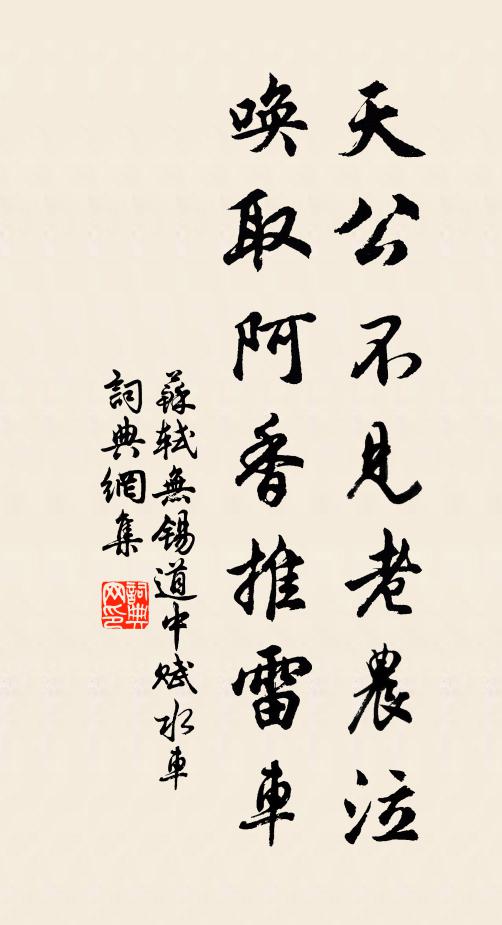 天公不見老農泣
喚取阿香推雷車
蘇軾無錫道中賦水車
詞典網集
詞典网印